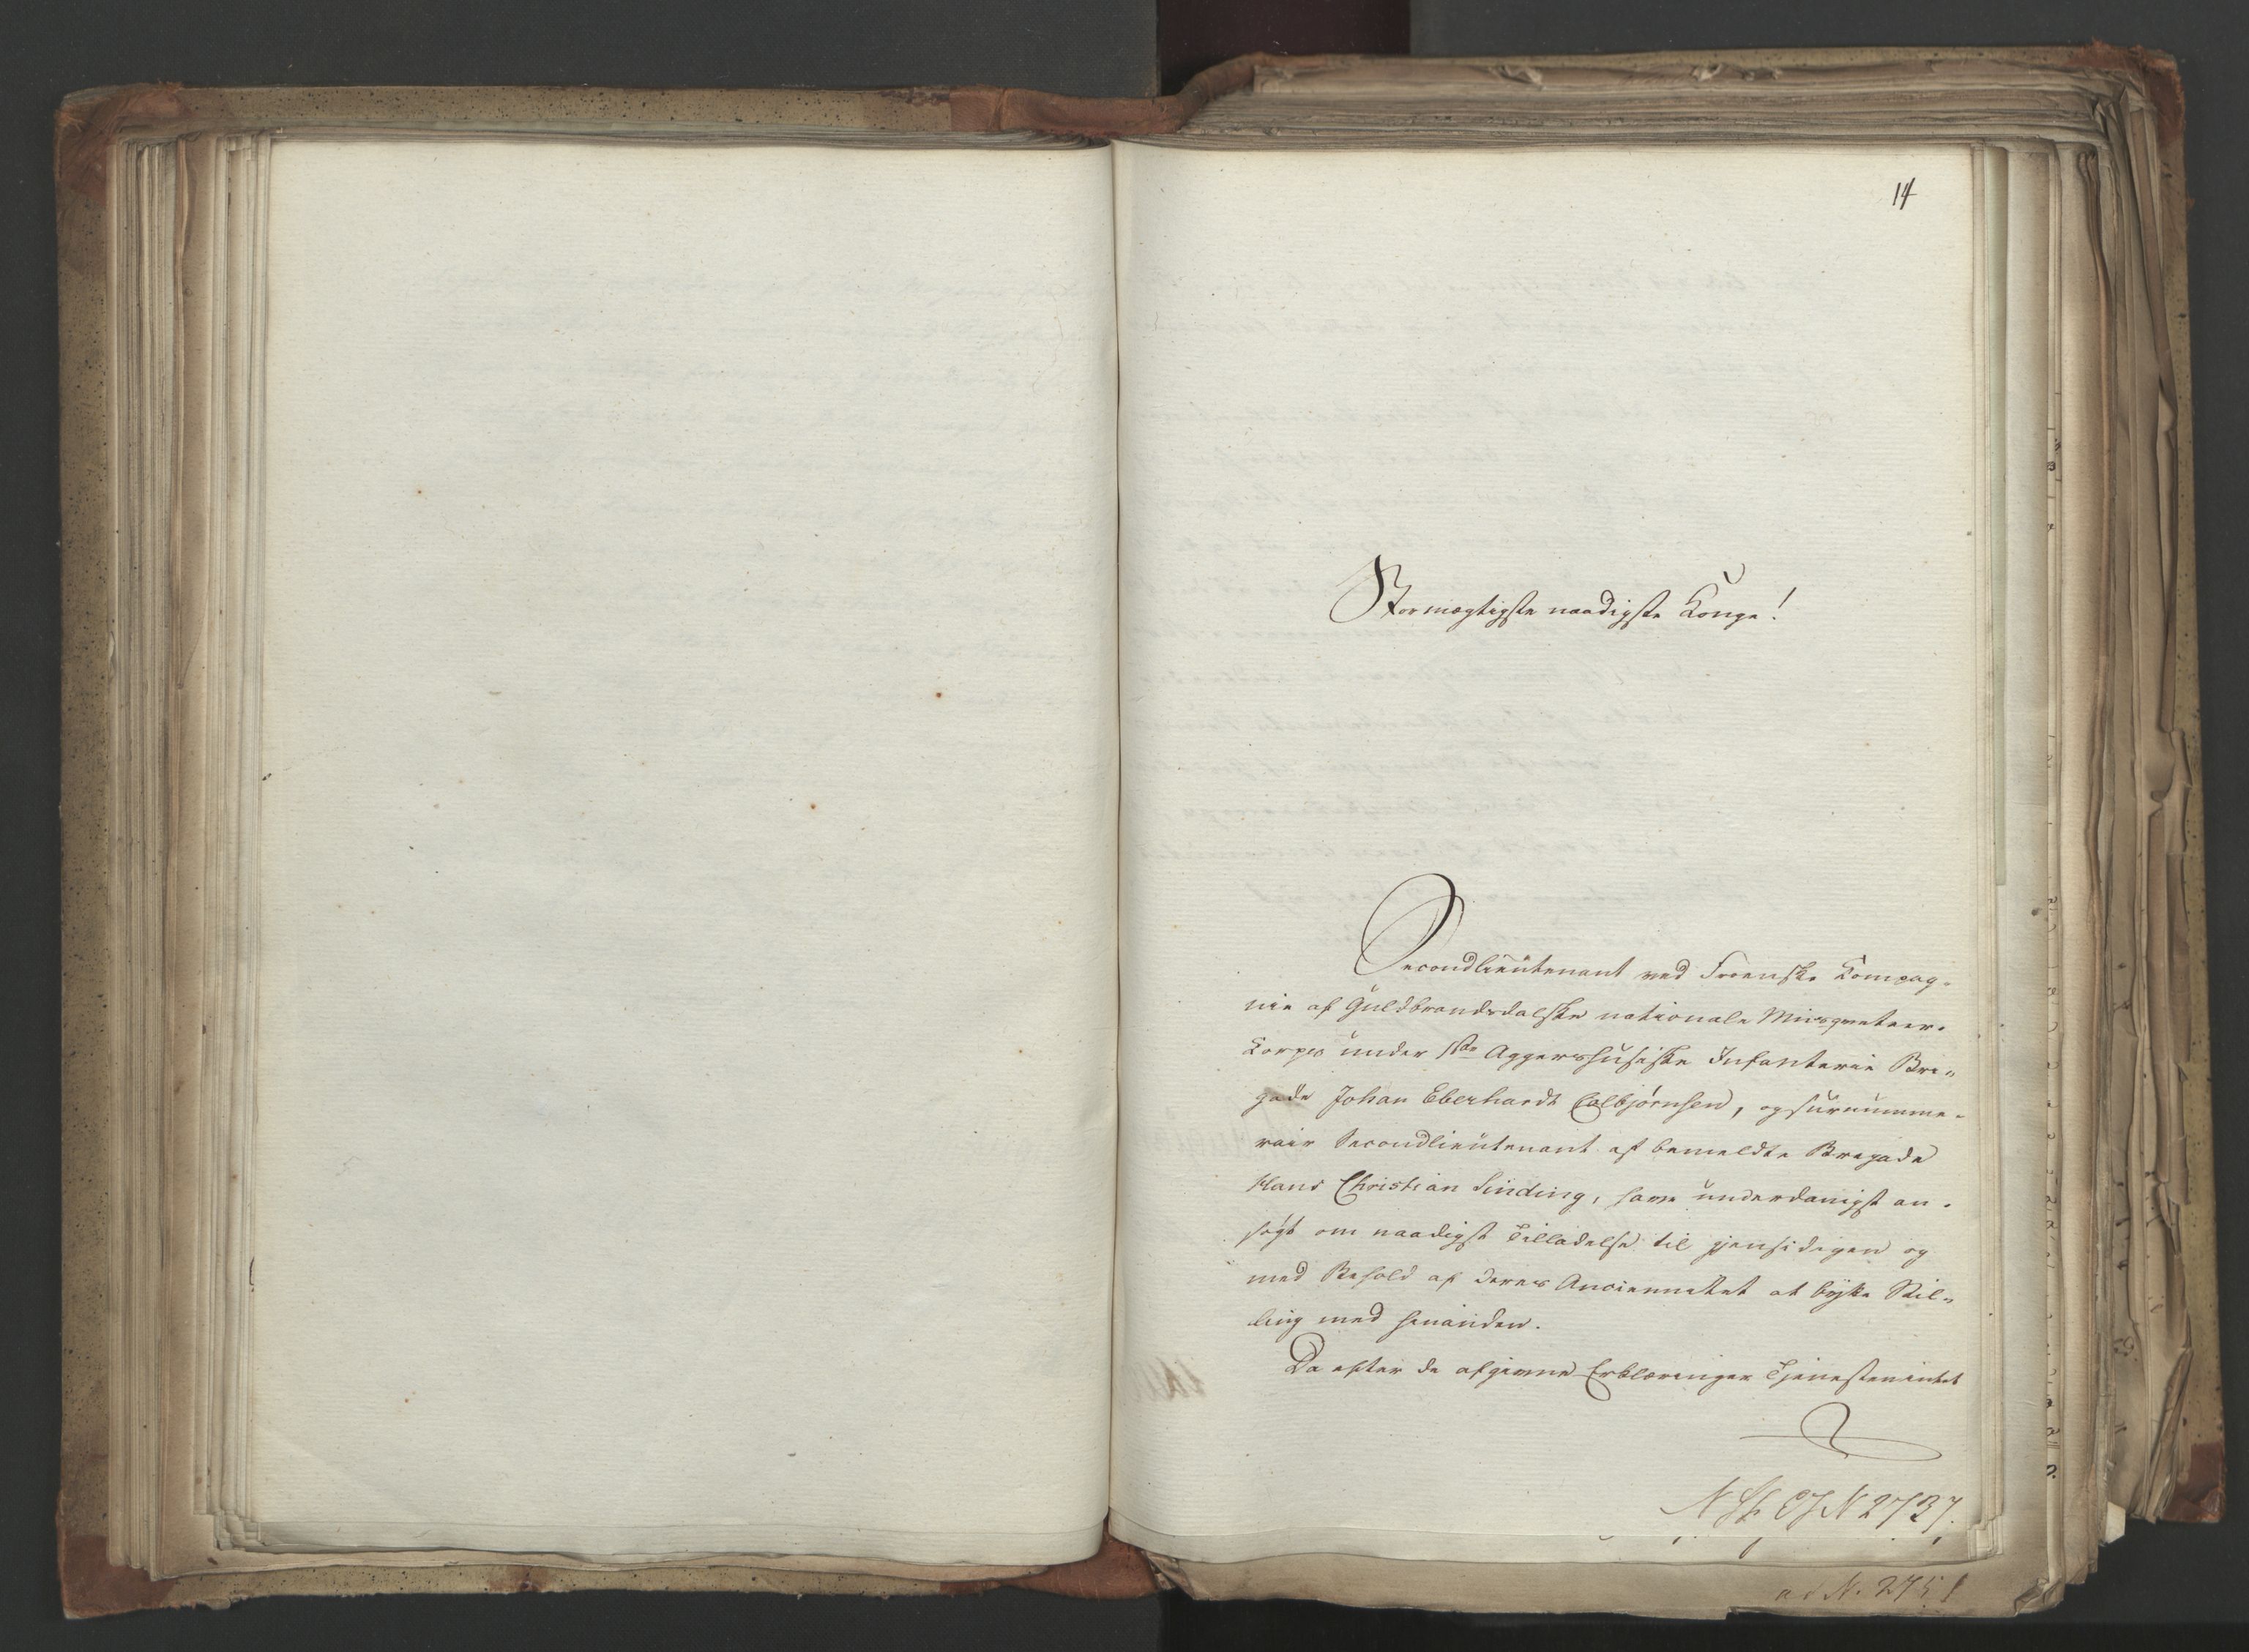 14
Stormægtigste naadigste Konge!
Secondlieutenant ved Froenske Kompag-
nie af Guldbrandsdalske nationale Musqueteer-
Korps under 1ste Aggershusiske Infanterie Bri-
gade Johan Eberhardt Colbjørnsen, og surnumme-
rair Secondlieutenant af bemeldte Brigade
Hans Christian Sinding, have underdanigst an-
søgt om naadigst Tilladelse til gjensidigen og
med Behold af deres Anciennetet at bytte Stil-
ling med hinanden.
Da efter de afgivne Erklæringer Tjenesten intet
N 2737.
ad N. 2751